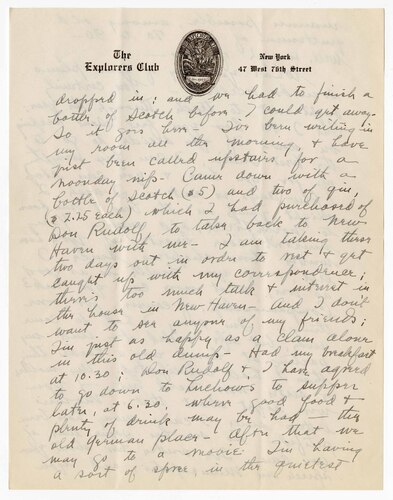 The
Explorers Club
New York
47 West 76th Street
dropped in; and we had to finish a
bottle of Scotch before I could get away.
So it goes here - I've been writing in
my room all the morning, & have
just been called upstairs for a
noonday nip - Came down with a
bottle of Scotch ($5) and two of gin,
($2.25 each) which I had purchased of
Don Rudolf, to take back to New
Haven with me - I am taking these
two days out in order to rest & get
caught up with my correspondence;
there's too much talk & interest in
the house in New Haven - and I don't
want to see anyone of my friends;
I'm just as happy as a clam alone
in this old dump - Had my breakfast
at 10.30; Don Rudolf & I have agreed
to go down to Luchows to supper
later, at 6.30, where good food &
plenty of drink may be had - the
old German place - After that we
may go to a movie. I'm having
a sort of spree, in the quietest